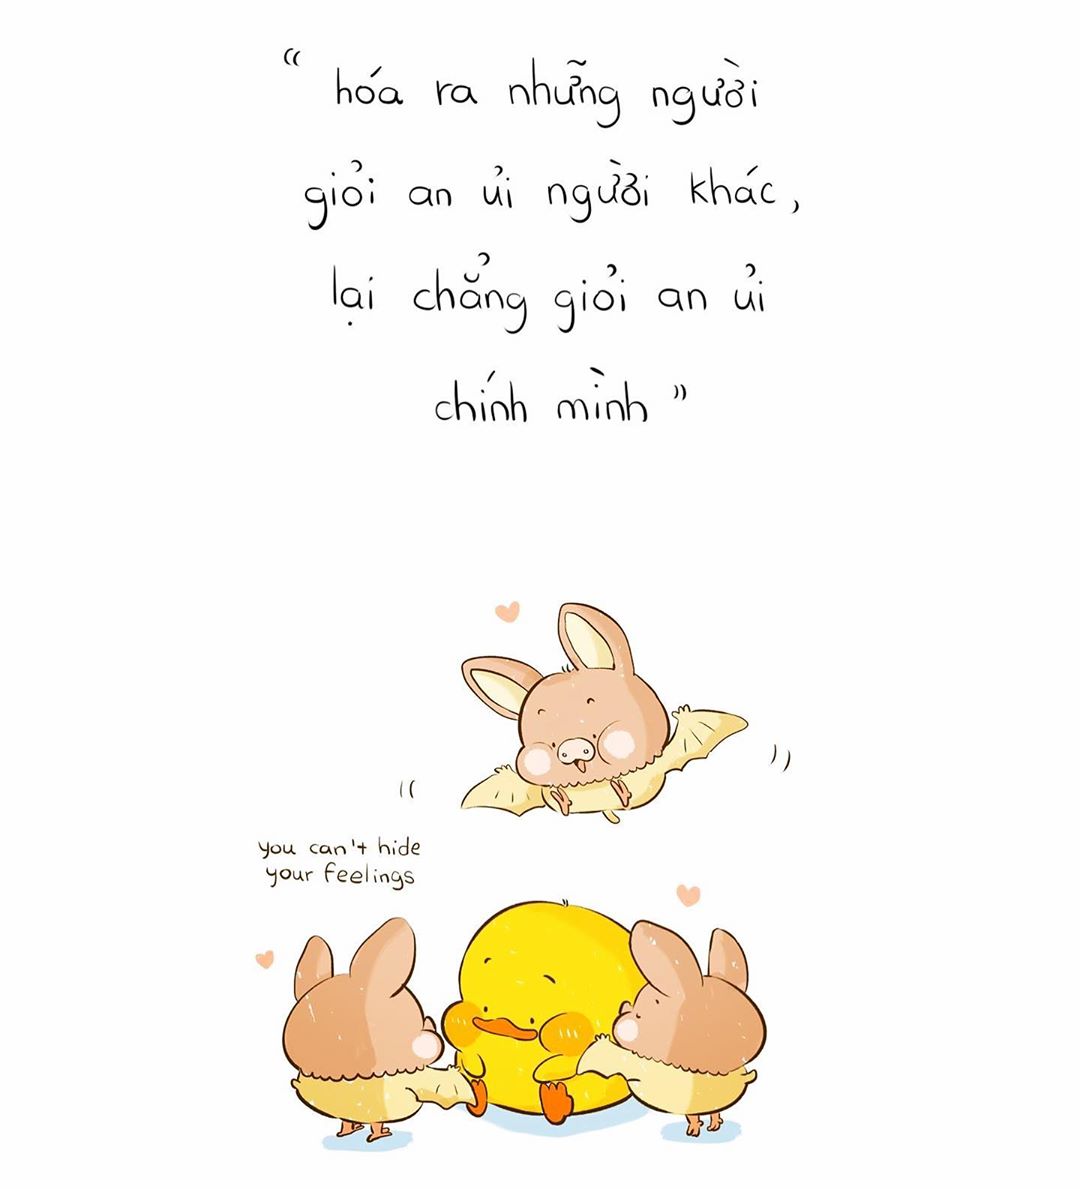 “ hóa ra những người
giỏi an ủi người khác,
lại chẳng giỏi an ủi
chính mình ”
you can't hide
your feelings